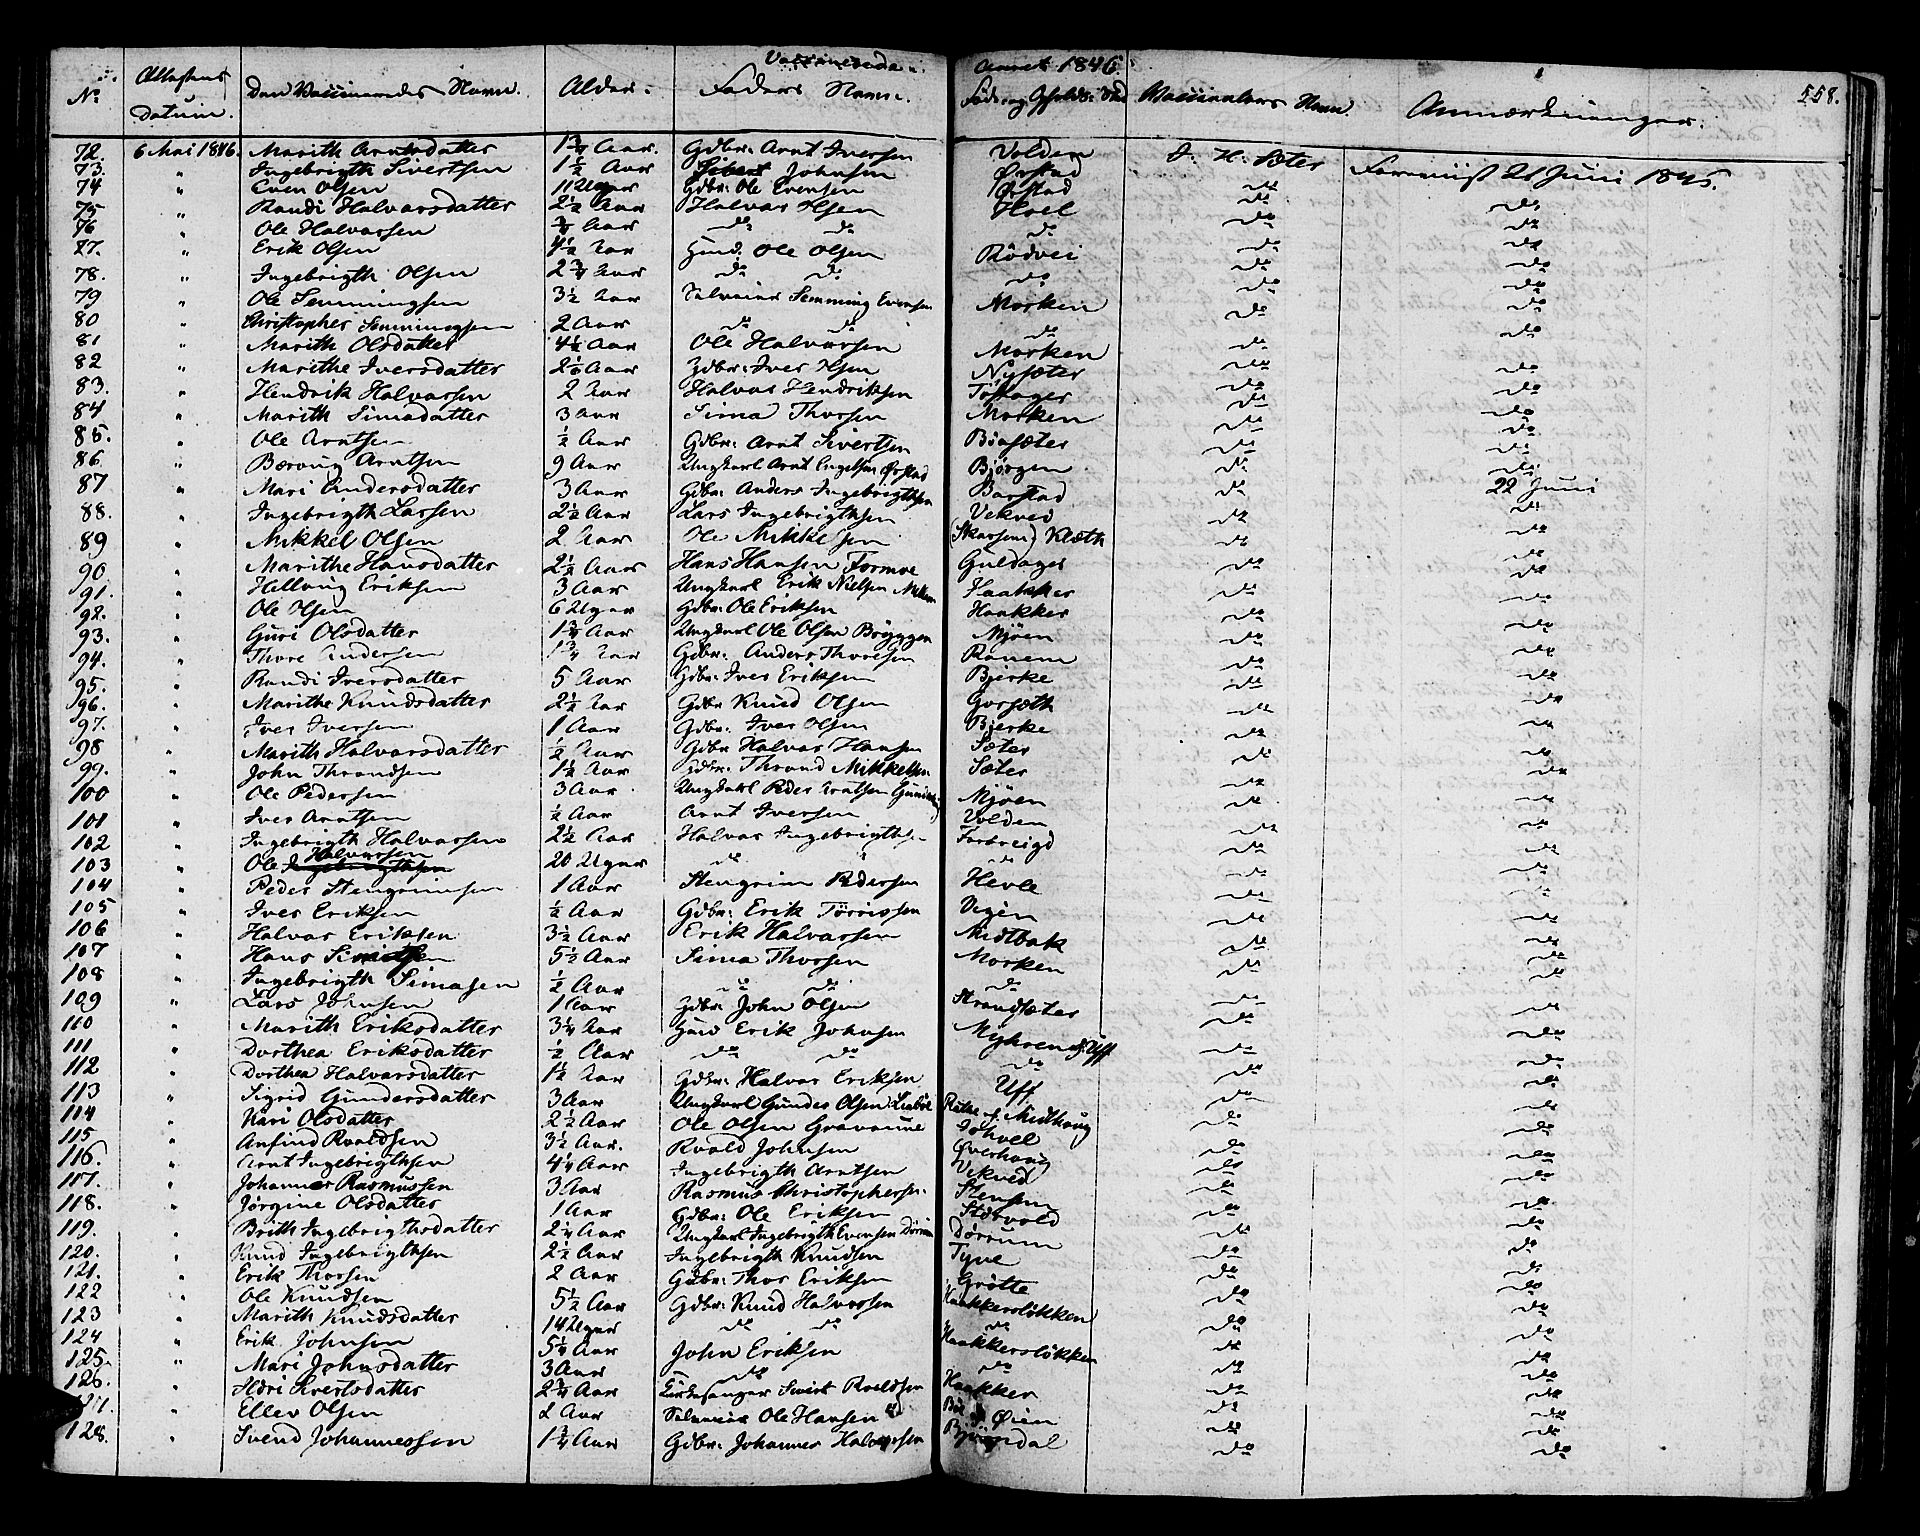 Vaccinerede
Aaret 1846.
558.
No Attestens Datum. Den Vaccineredes Navn. Alder. Faders Navn. Føde og Opholds Sted Vaccinators Navn. Anmærkninger.
72. 6 Mai 1846. Marith Arntsdatter 1 3/4 Aar. Gdbr: Arnt Iversen Volden J. H. Sæter Formiist 21 Juni 1845.
73. " Ingebrigth Sivertsen 1 1/2 Aar Johnsen Ørstad do
74 " Even Olsen 11 Uger Gdbr: Ole Evensen Ørstad do
75 " Randi Halvorsdatter 2 1/2 Aar Halvor Olsen Hoel do do
76 " Ole Halvorsen Aar do do do do do
77. " Erik Olsen 4 1/2 Aar Huusm. Ole Olsen Rødvei do do
78. " Ingebrigth Olsen 2 3/4 Aar do do do do do
79 " Ole Semmingsen 3 1/2 Aar Selveier Semming Evensen Morken do do
80 " Christopher Semmingsen 2 Aar do do do do do
81 " Marith Olsdatter 4 1/2 Aar Ole Halvorsen Morken do do
82 " Marithe Iversdatter 2 1/2 Aar Gdbr: Iver Olsen Nysæter do do
83. " Hendrik Halvorsen 2 Aar Halvor Hendriksen do do
84 " Marith Simadatter 3 Aar Sima Thorsen Morken do do
85. " Ole Arntsen 1/2 Aar Gdbr: Arnt Sivertsen do do
86. " Arntsen 9 Aar Ungkarl Arnt Engelsen Ørstad Bjørgen do do
87 " Mari Andersdatter 3 Aar Gdbr: Anders Ingebrigthsen Barstad do 22 Juni
88. " Ingebrigth Larsen 2 1/2 Aar Lars Ingebrigthsen Vekvei do do
89 " Mikkel Olsen 2 Aar Ole Mikkelsen (Skarsem) Klæth do do
90 " Marithe Hansdatter 2 1/2 Aar Hans Hansen Formoe do do
91. " Hellvig Eriksen 3 Aar Ungkarl Erik Nielsen Haakker do do
92. " Ole Olsen 6 Uger Gdbr: Ole Eriksen Haakker do do
93. " Guri Olsdatter 1 3/4 Aar Ungkarl Ole Olsen Bryggen Mjøen do do
94. " Thore Andersen 1 3/4 Aar Gdbr: Anders Thoresen Ranem do do
95. " Randi Iversdatter 5 Aar Gdbr: Iver Eriksen Bjerke do do
96. " Marithe Knudsdatter 2 1/2 Aar Gdbr Knud Olsen Gorsæth do do
97. " Iver Iversen 1 Aar Gdbr: Iver Olsen Bjerke do do
98 " Marith Halvorsdatter 1/2 Aar Gdbr Halvor Hansen Sæter do do
99. " John Throndsen 1 1/2 Aar Gdbr: Thrond Mikkelsen Sæter do do
100 " Ole Pedersen 3 Aar Ungkarl Peder Arntsen Mjøen do do
101 " Iver Arntsen 1/2 Aar Arnt Iversen Volden do do
102 " Ingebrigth Halvorsen 2 1/2 Aar Halvor Ingebrigthsen Forbreigd do do
103 " Ole Halvorsen 20 Uger do do do do
104 " Peder Stengrimsen 1 Aar Stengrim Pedersen Hevle do do
105 " Iver Eriksen 1/2 Aar Gdbr: Erik Tørrissen Vigen do do
106 " Halvor Eriksen 3 1/2 Aar Erik Halvorsen Midtbak do do
107 " Hans 5 1/2 Aar Sima Thorsen Morken do do
108 " Ingebrigth Simasen 1/2 Aar do do do do do
109 " Lars Johnsen 1 Aar Gdbr: John Olsen Strandsæter do do
110 " Marith Eriksdatter 3 1/4 Aar Huusm Erik Johnsen Myhren u: Uff do do
111 " Dorthea Eriksdatter 1/2 Aar do do do do do
112 " Dorthea Halvorsdatter 1 1/2 Aar Gdbr: Halvor Eriksen Uff do do
113 " Sigrid Gundersdatter 3 Aar Ungkarl Gunder Olsen do do
114 " Kari Olsdatter 2 1/2 Aar Ole Olsen Gravaune do do
115 " Anfind Roaldsen 3 1/2 Aar. Roald Johnsen do do
116. " Arnt Ingebrigthsen 4 1/4 Aar Ingebrigth Arntsen Øverhaug do do
117. " Johannes Rasmussen 3 Aar Rasmus Christophersen Vekved do do
118. " Jørgine Olsdatter 1 Aar Gdbr: Ole Eriksen Stensen do do
119. " Brith Ingebrigthsdatter 2 1/4 Aar Ungkarl Ingebrigth Evensen Dørrum Dørrum do do
120. " Knud Ingebrigthsen 2 1/2 Aar Ingebrigth Knudsen do do
121. " Erik Thorsen 2 Aar Gdbr: Thor Eriksen Grøtte do do
122 " Ole Knudsen 5 1/2 Aar Gdbr: Knud Halvorsen Haakkersløkken do do
123 " Marith Knudsdatter 14 Uger do do do do do
124 " Erik Johnsen 5 1/4 Aar John Eriksen Haakkersløkken do do
125. " Mari Johnsdatter 3 Aar do do do do
126. " Sivertsdatter 2 3/4 Aar Kirkesanger Sivert Roaldsen Haakker do do
127. " Ellev Olsen 2 Aar Selveier Ole Hansen Øien do do
128. " Svend Johannessen 1 3/4 Aar Gdbr: Johannes Halvorsen Bjørndal do do